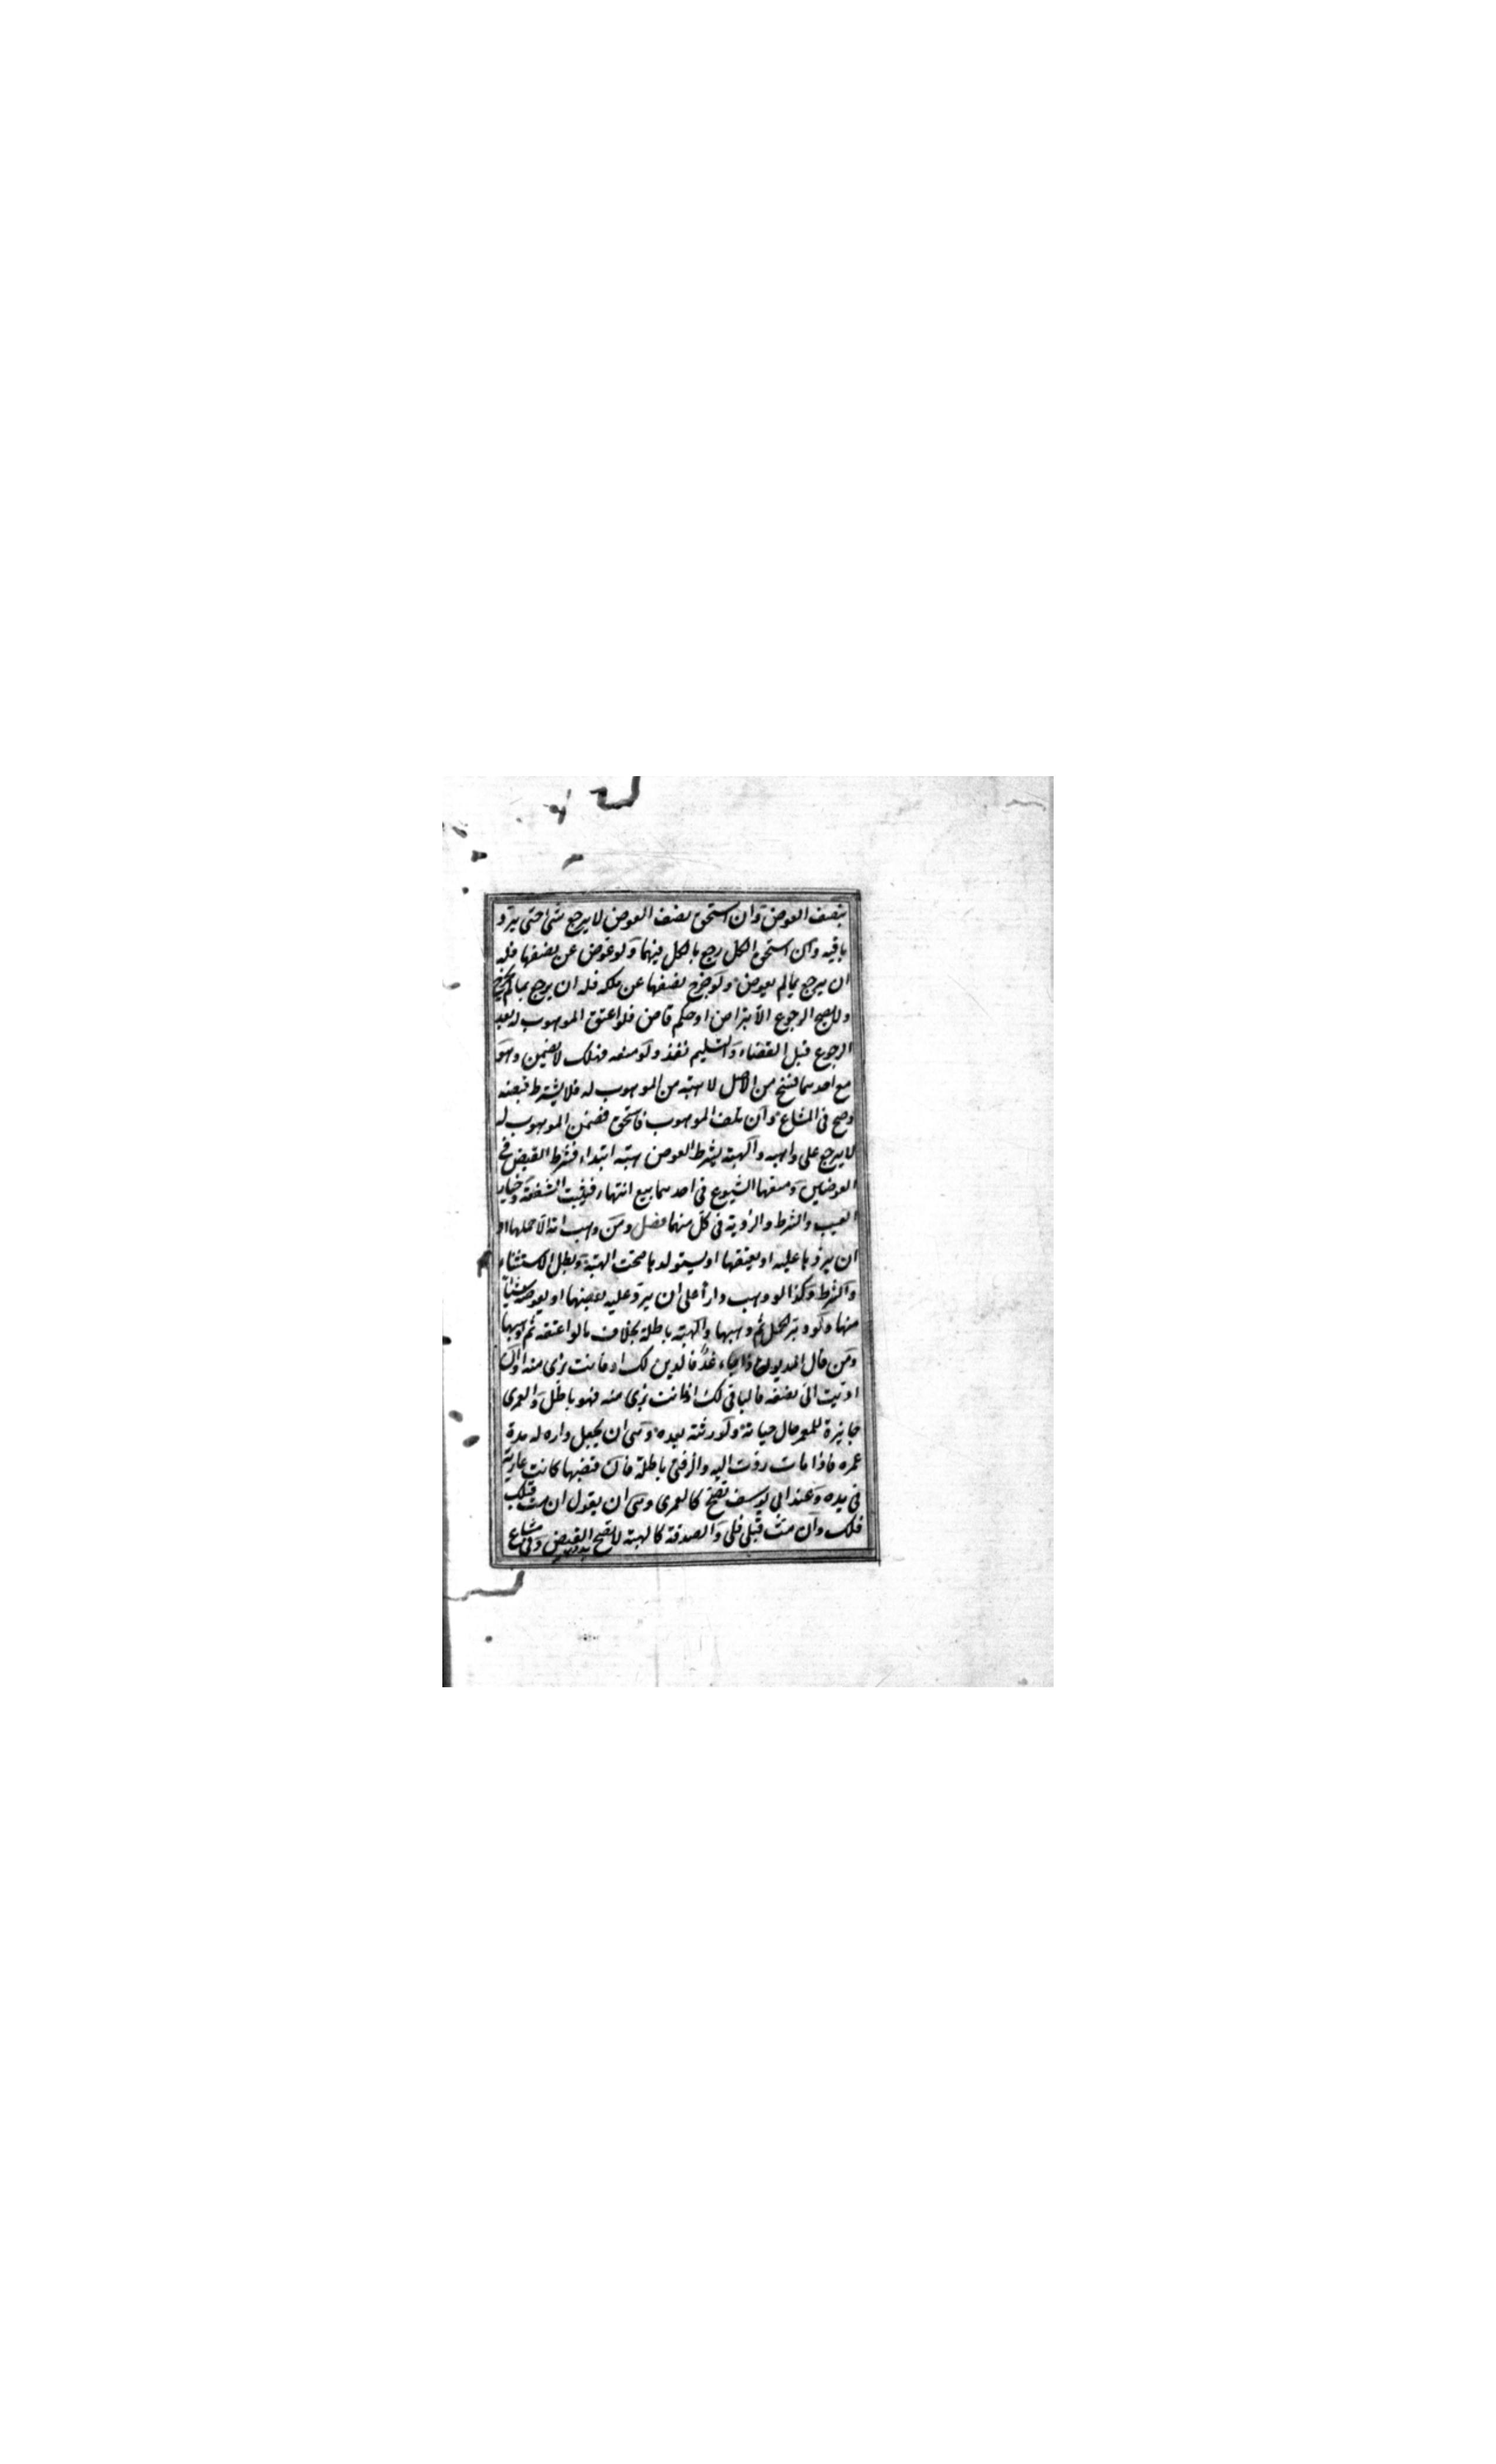 بنصف العوض وان استحق نصف العوض لا يرجع بشئ حتى يرد
باقيه وان استحق الكل رجع بالكل فيهما ولو عوض عن نصفها فله
ان يرجع بما لم يعوض ولو خرج نصفها عن ملكه فله ان يرجع بما لم يخرج
ولا يصح الرجوع الا بتراض او حكم قاض فلو اعتق الموهوب له بعد
الرجوع قبل القضاء والتسليم نفذ ولو منعه فهلك لا يضمن وهو
مع احدهما فسخ من الاصل لا هبة من الموهوب له فلا يشترط قبضه
وصح فى المشاع وان تلف الموهوب فاستحق فضمن الموهوب له
لا يرجع على واهبه والهبة بشرط العوض هبة ابتداء فشرط القبض فى
العوضين ومنعها الشيوع فى احدهما بيع انتهاء فيثبت الشفعة وخيار
العيب والشرط والرؤية فى كل منهما فصل ومن وهب امة الا حملها او
ان يردها عليه او يعتقها او يستولدها صحت الهبة وبطل الاستثناء
والشرط وكذا لو وهب دارا على ان يرد عليه بعضها او يعوضه شيئا
منها ولو دبر الحمل ثم وهبها والهبة باطلة بخلاف ما لو اعتقه ثم وهبها
ومن قال لمديونه اذا جاء غد فالدين لك او فانت برئ منه او ان
اديت الى نصفه فالباقى لك او فانت برئ منه فهو باطل والعمرى
جايزة للمعمر حال حياته ولورثته بعده وهى ان يجعل داره له مدة
عمره فاذا مات ردت اليه والرقبى باطلة فان قبضها كانت عارية
فى يده وعند ابى يوسف تصح كالعمرى وهى ان يقول ان مت قبلك
فلك وان مت قبلى فلى والصدقة كالهبة لا تصح بدون القبض ولا فى مشاع